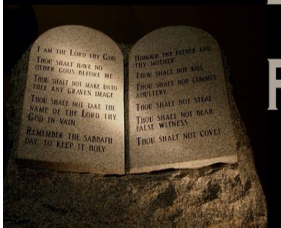 I AM THE LORD THY GOD
THOU SHALT HAVE NO
OTHER GODS BEFORE ME
THOU SHALT NOT MAKE UNTO
THEE ANY GRAVEN IMAGE
THOU SHALT NOT TAKE THE
NAME OF THE LORD THY
GOD IN VAIN
REMEMBER THE SABBATH
DAY, TO KEEP IT HOLY
HONOUR THY FATHER AND
THY MOTHER
THOU SHALT NOT KILL
THOU SHALT NOT COMMIT
ADULTERY
THOU SHALT NOT STEAL
THOU SHALT NOT BEAR
FALSE WITNESS
THOU SHALT NOT COVET